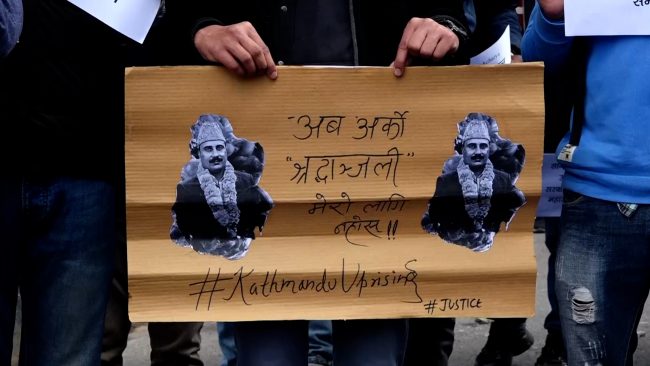 अब अर्को
"श्रद्धाञ्जली"
मेरो लागि
नहोस् !!
#KathmanduUprising
#JUSTICE